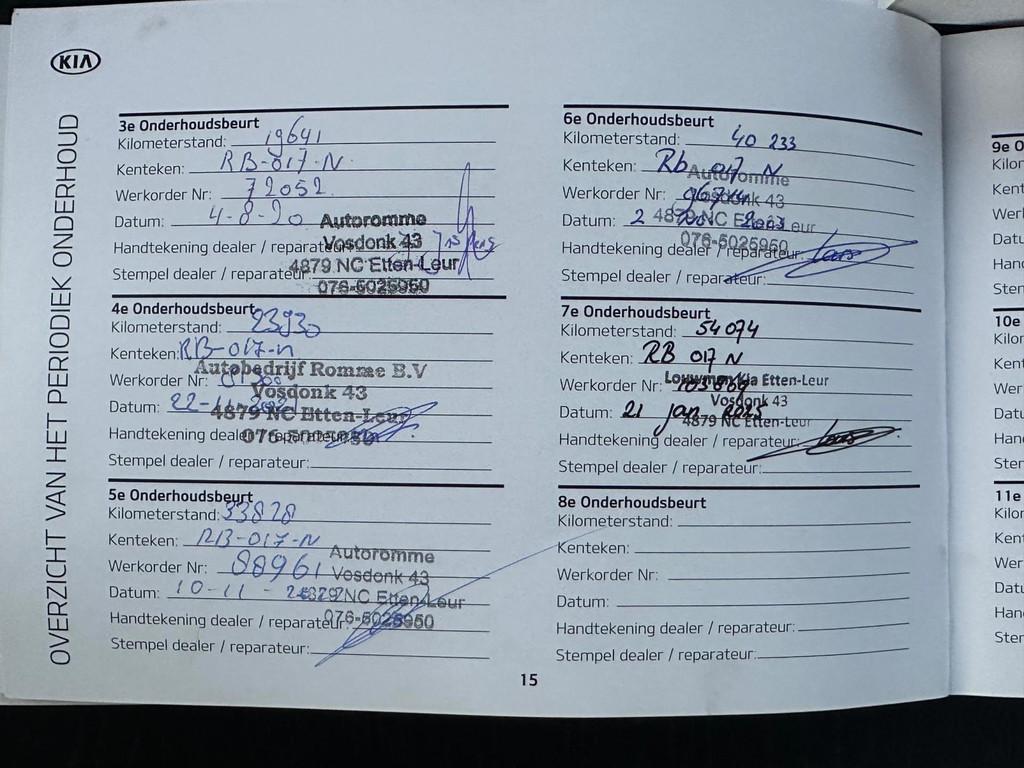 KIA
OVERZICHT VAN HET PERIODIEK ONDERHOUD
3e Onderhoudsbeurt
Kilometerstand: 19641
Kenteken: RB-017-N
Werkorder Nr: 72052
Datum: 4-8-20
Handtekening dealer / reparateur:
Stempel dealer / reparateur:
Autoromme
Vosdonk 43
4879 NC Etten-Leur
076-5025950
4e Onderhoudsbeurt
Kilometerstand: 23930
Kenteken: RB-017-n
Werkorder Nr:
Datum: 22-11-
Handtekening dealer / reparateur:
Stempel dealer / reparateur:
Autobedrijf Romme B.V
Vosdonk 43
4879 NC Etten-Leur
076-5025950
5e Onderhoudsbeurt
Kilometerstand: 33828
Kenteken: RB-017-N
Werkorder Nr: 88961
Datum: 10-11-
Handtekening dealer / reparateur:
Stempel dealer / reparateur:
Autoromme
Vosdonk 43
4879 NC Etten-Leur
076-5025950
6e Onderhoudsbeurt
Kilometerstand: 40 233
Kenteken: Rb 017 N
Werkorder Nr:
Datum: 2
Handtekening dealer / reparateur:
Stempel dealer / reparateur:
Autoromme
Vosdonk 43
4879 NC Etten-Leur
076-5025950
7e Onderhoudsbeurt
Kilometerstand: 54074
Kenteken: RB 017 N
Werkorder Nr: 103869
Datum: 21 jan 2025
Handtekening dealer / reparateur:
Stempel dealer / reparateur:
Louwman Kia Etten-Leur
Vosdonk 43
4879 NC Etten-Leur
8e Onderhoudsbeurt
Kilometerstand:
Kenteken:
Werkorder Nr:
Datum:
Handtekening dealer / reparateur:
Stempel dealer / reparateur:
15
9e
10e
11e